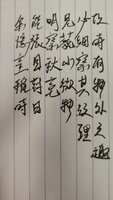 余憶童稚時
能張目對日
明察秋毫
見藐小微物
必細察其紋理
故時有物外之趣